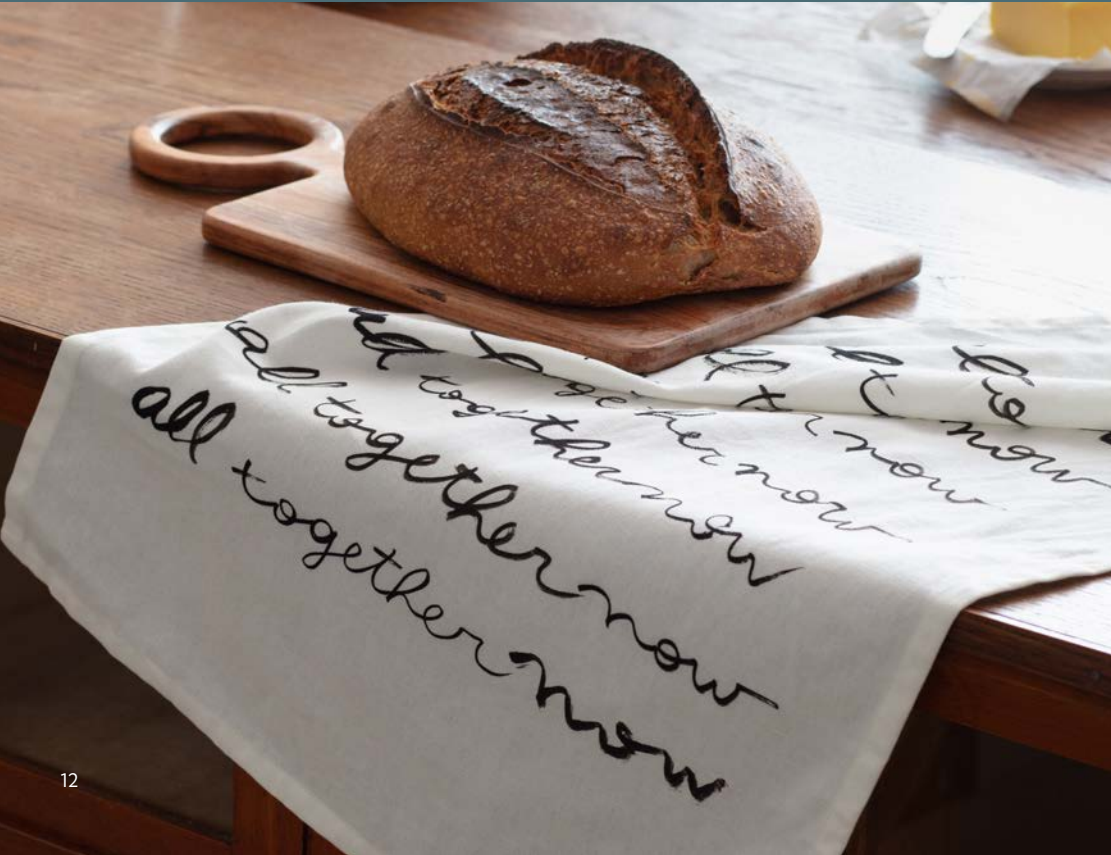 now
now
together now
all together now
all together now
all together now
12